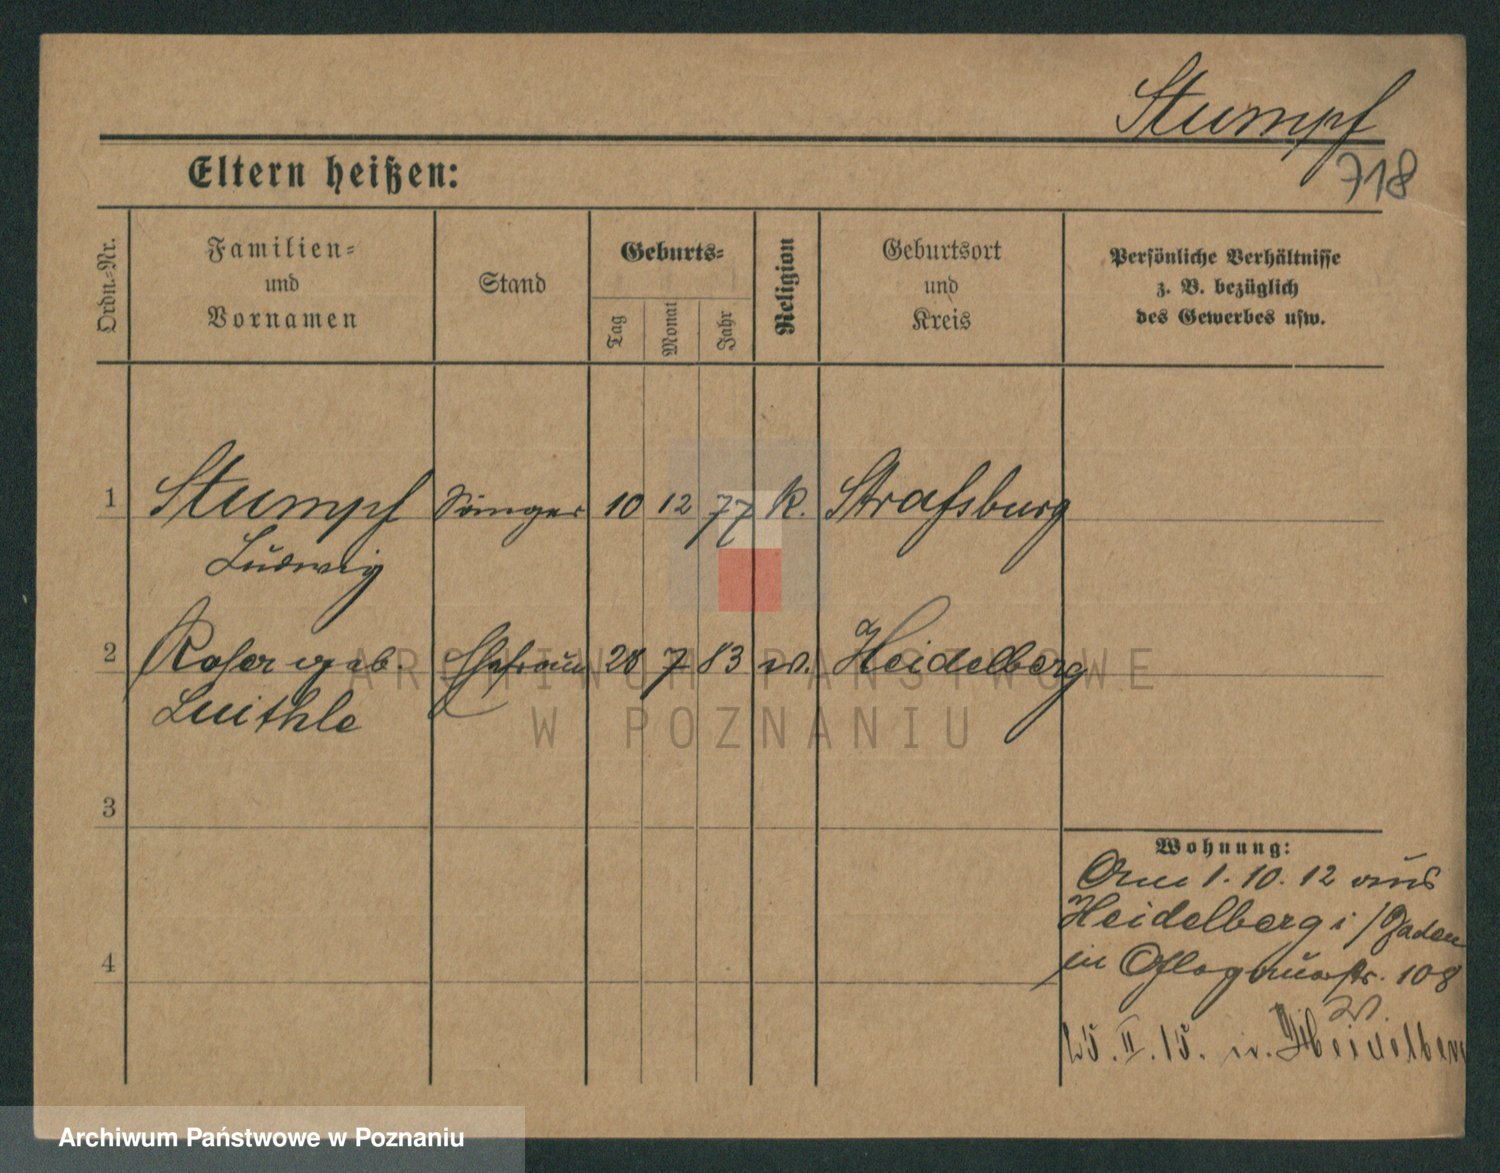 Stumpf
718
Eltern heißen:
Ordn.-Nr.
Familien-
und
Vornamen
Stand
Geburts-
Tag
Monat
Jahr
Religion
Geburtsort
und
Kreis
Persönliche Verhältnisse
z. B. bezüglich
des Gewerbes usw.
1 Stumpf Sänger 10 12 77 k. Strassburg
Ludwig
2 geb. Ehefrau 28 7 83 Heidelberg
Luithle
3
4
Wohnung:
Am 1. 10. 12 aus
Heidelberg i/Baden
in Glogauerstr. 108
W.
25. II. 15. n. Heidelberg
ARCHIWUM PAŃSTWOWE
W POZNANIU
Archiwum Państwowe w Poznaniu